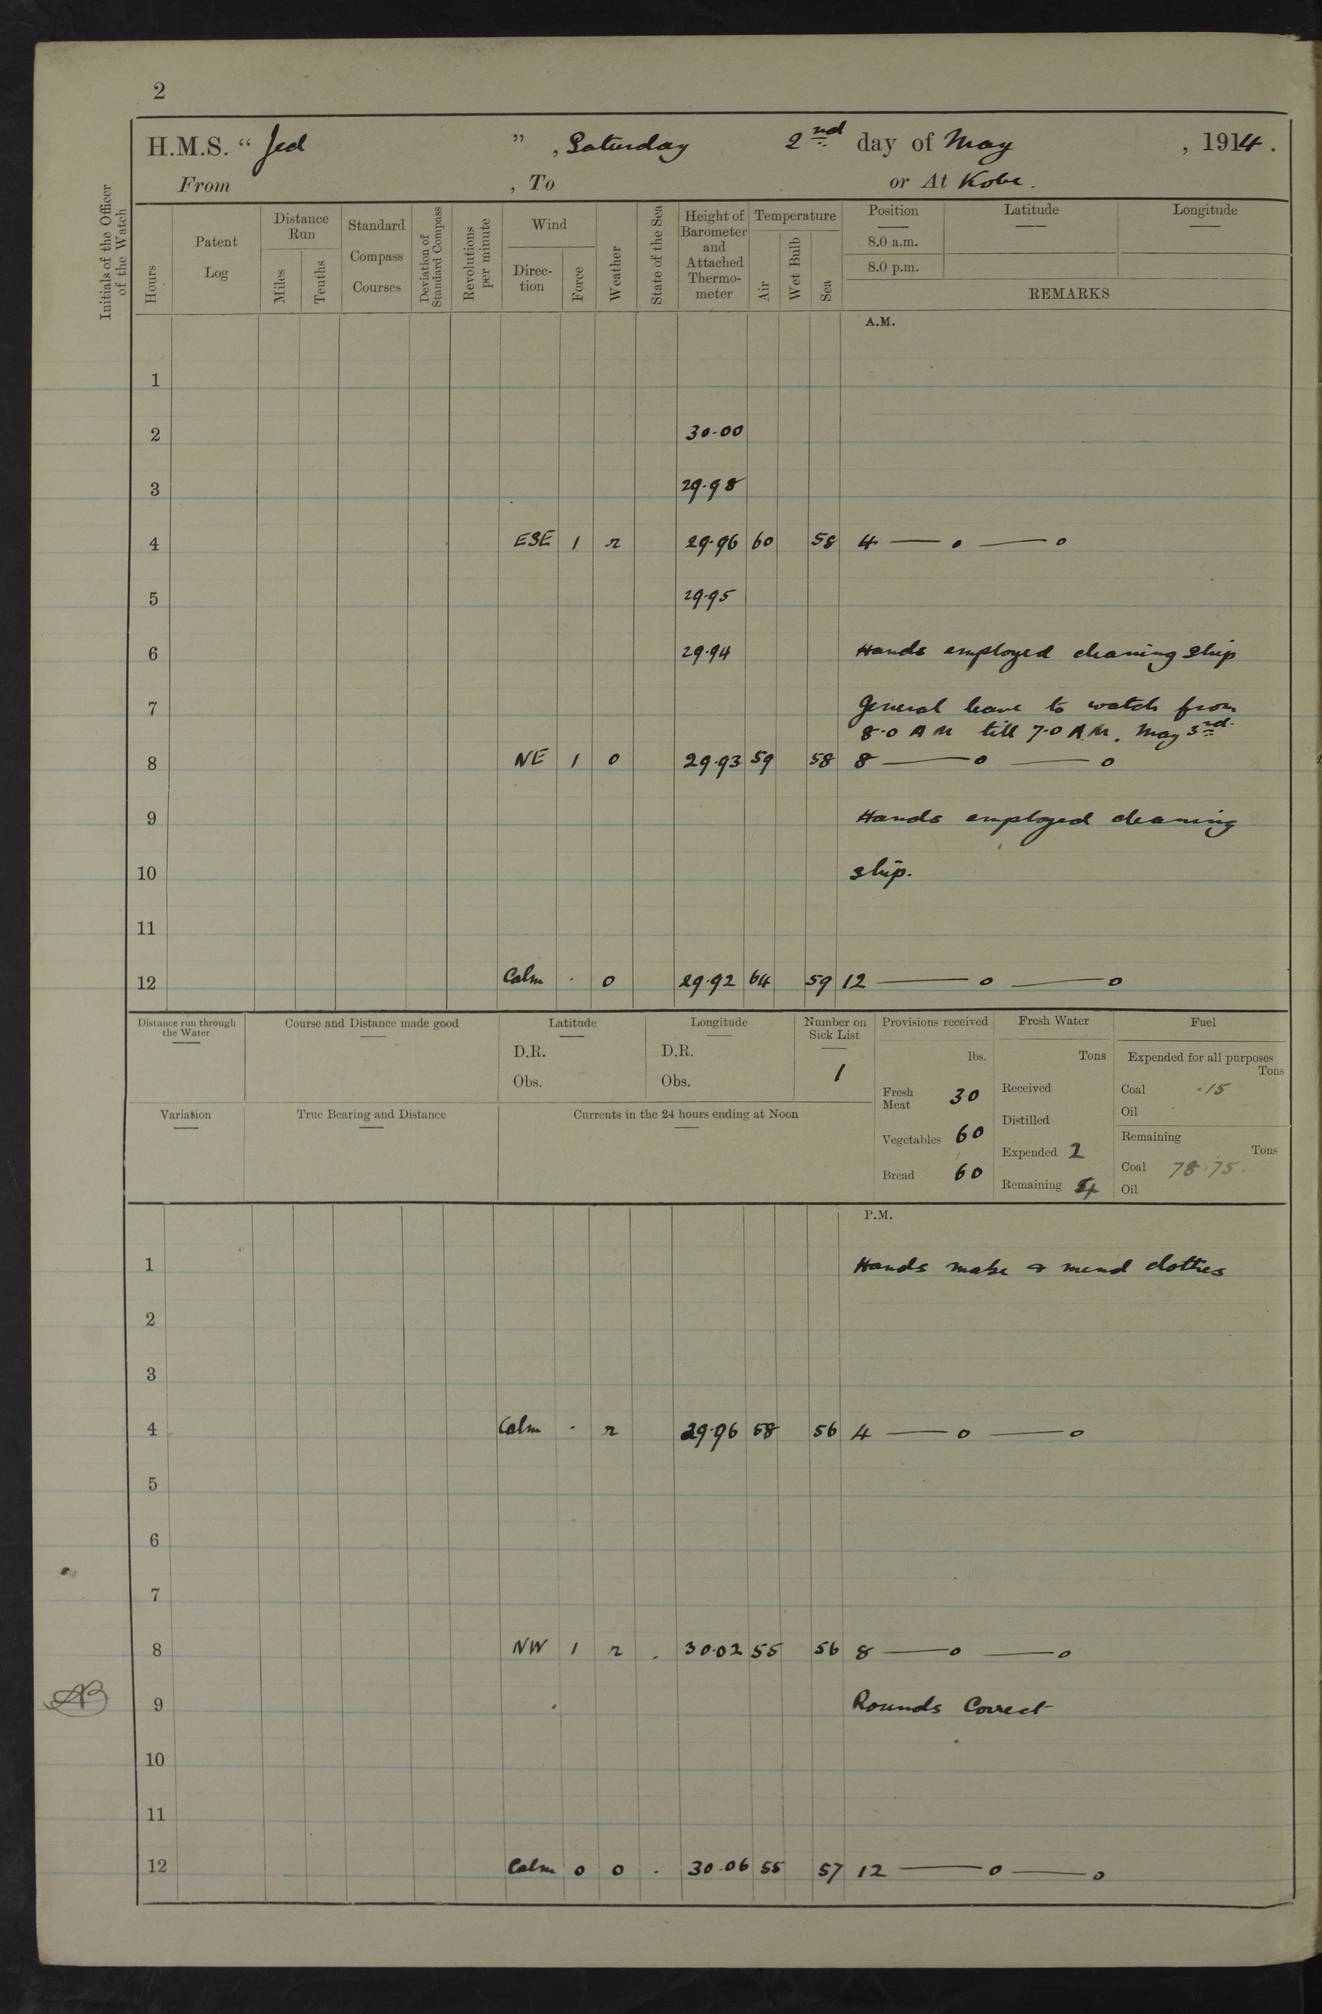 2
H.M.S. “ Jed ” , Saturday 2nd day of May , 1914 .
From , To or At Kobe .
Initials of the Officer of the Watch
Hours
Patent Log
Distance Run
Miles
Tenths
Standard Compass Courses
Deviation of Standard Compass
Revolutions per minute
Wind
Direc-tion
Force
Weather
State of the Sea
Height of Barometer and Attached Thermo-meter
Temperature
Air
Wet Bulb
Sea
Position Latitude Longitude
8.0 a.m.
8.0 p.m.
REMARKS
A.M.
1
2 30.00
3 29.98
4 ESE 1 r 29.96 60 58 4 — o — o
5 29.95
6 29.94 Hands employed cleaning ship
7 General leave to watch from
8.0 AM till 7.0 AM. May 3rd.
8 NE 1 o 29.93 59 58 8 — o — o
9 Hands employed cleaning
10 ship.
11
12 Calm . o 29.92 64 59 12 — o — o
Distance run through the Water
Course and Distance made good
Latitude
D.R.
Obs.
Longitude
D.R.
Obs.
Number on Sick List
1
Variation
True Bearing and Distance
Currents in the 24 hours ending at Noon
Provisions received
lbs.
Fresh Meat 30
Vegetables 60
Bread 60
Fresh Water
Tons
Received
Distilled
Expended 2
Remaining
Fuel
Expended for all purposes
Tons
Coal .15
Oil
Remaining
Tons
Coal 78.75.
Oil
P.M.
1 Hands make & mend clothes
2
3
4 Calm . r 29.96 58 56 4 — o — o
5
6
7
8 NW 1 r . 30.02 55 56 8 — o — o
9 Rounds Correct
10
11
12 Calm o o . 30.06 55 57 12 — o — o